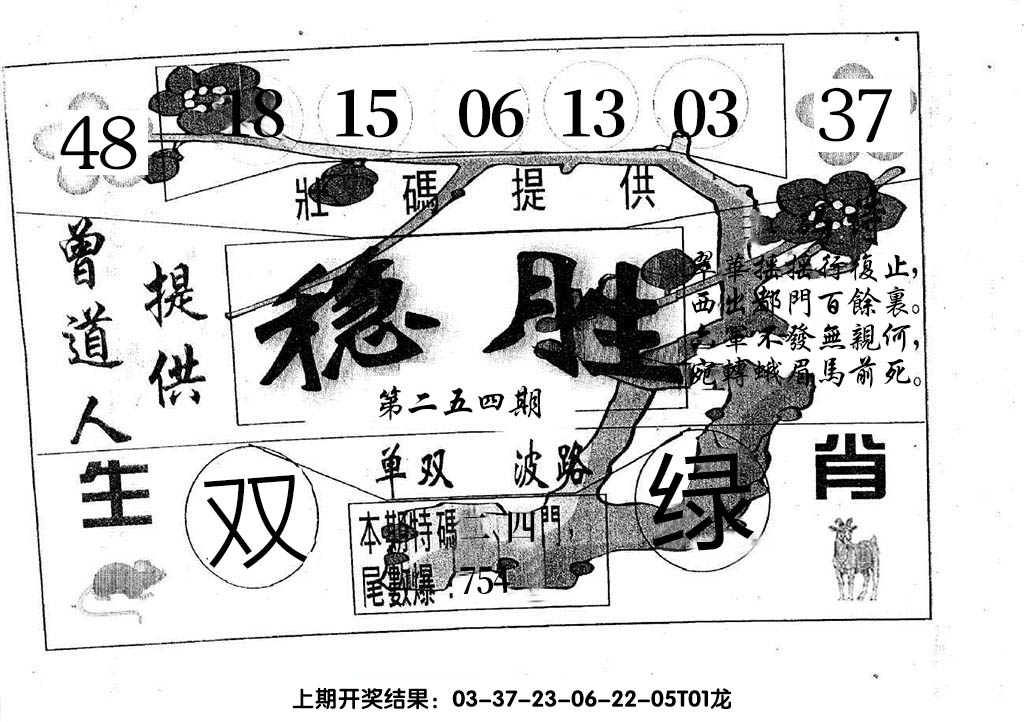 48 18 15 06 13 03 37
壯碼提供
特
曾道人
提供
稳胜
第二五四期
翠華摇摇行復止，
西出都門百餘裏。
六軍不發無親何，
宛轉蛾眉馬前死。
生肖
单双 波路
双
绿
本期特碼二、四門，
尾數爆：754
上期开奖结果：03-37-23-06-22-05T01龙